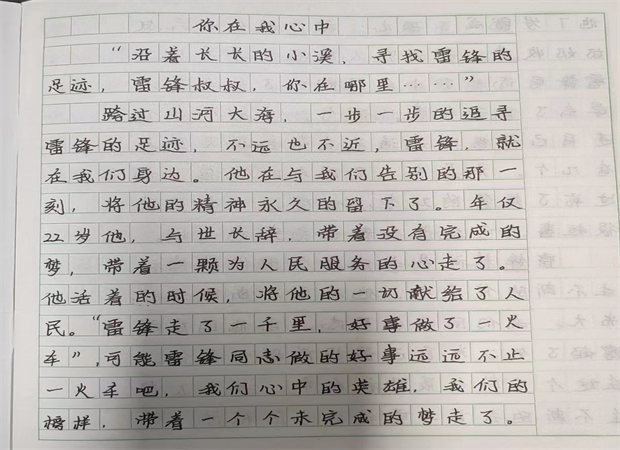 你在我心中
“沿着长长的小溪，寻找雷锋的
足迹，雷锋叔叔，你在哪里……”
跨过山河大海，一步一步的追寻
雷锋的足迹，不远也不近，雷锋，就
在我们身边。他在与我们告别的那一
刻，将他的精神永久的留下了。年仅
22岁他，与世长辞，带着没有完成的
梦，带着一颗为人民服务的心走了。
他活着的时候，将他的一切献给了人
民。“雷锋走了一千里，好事做了一火
车”，可能雷锋同志做的好事远远不止
一火车吧，我们心中的英雄，我们的
榜样，带着一个个未完成的梦走了。